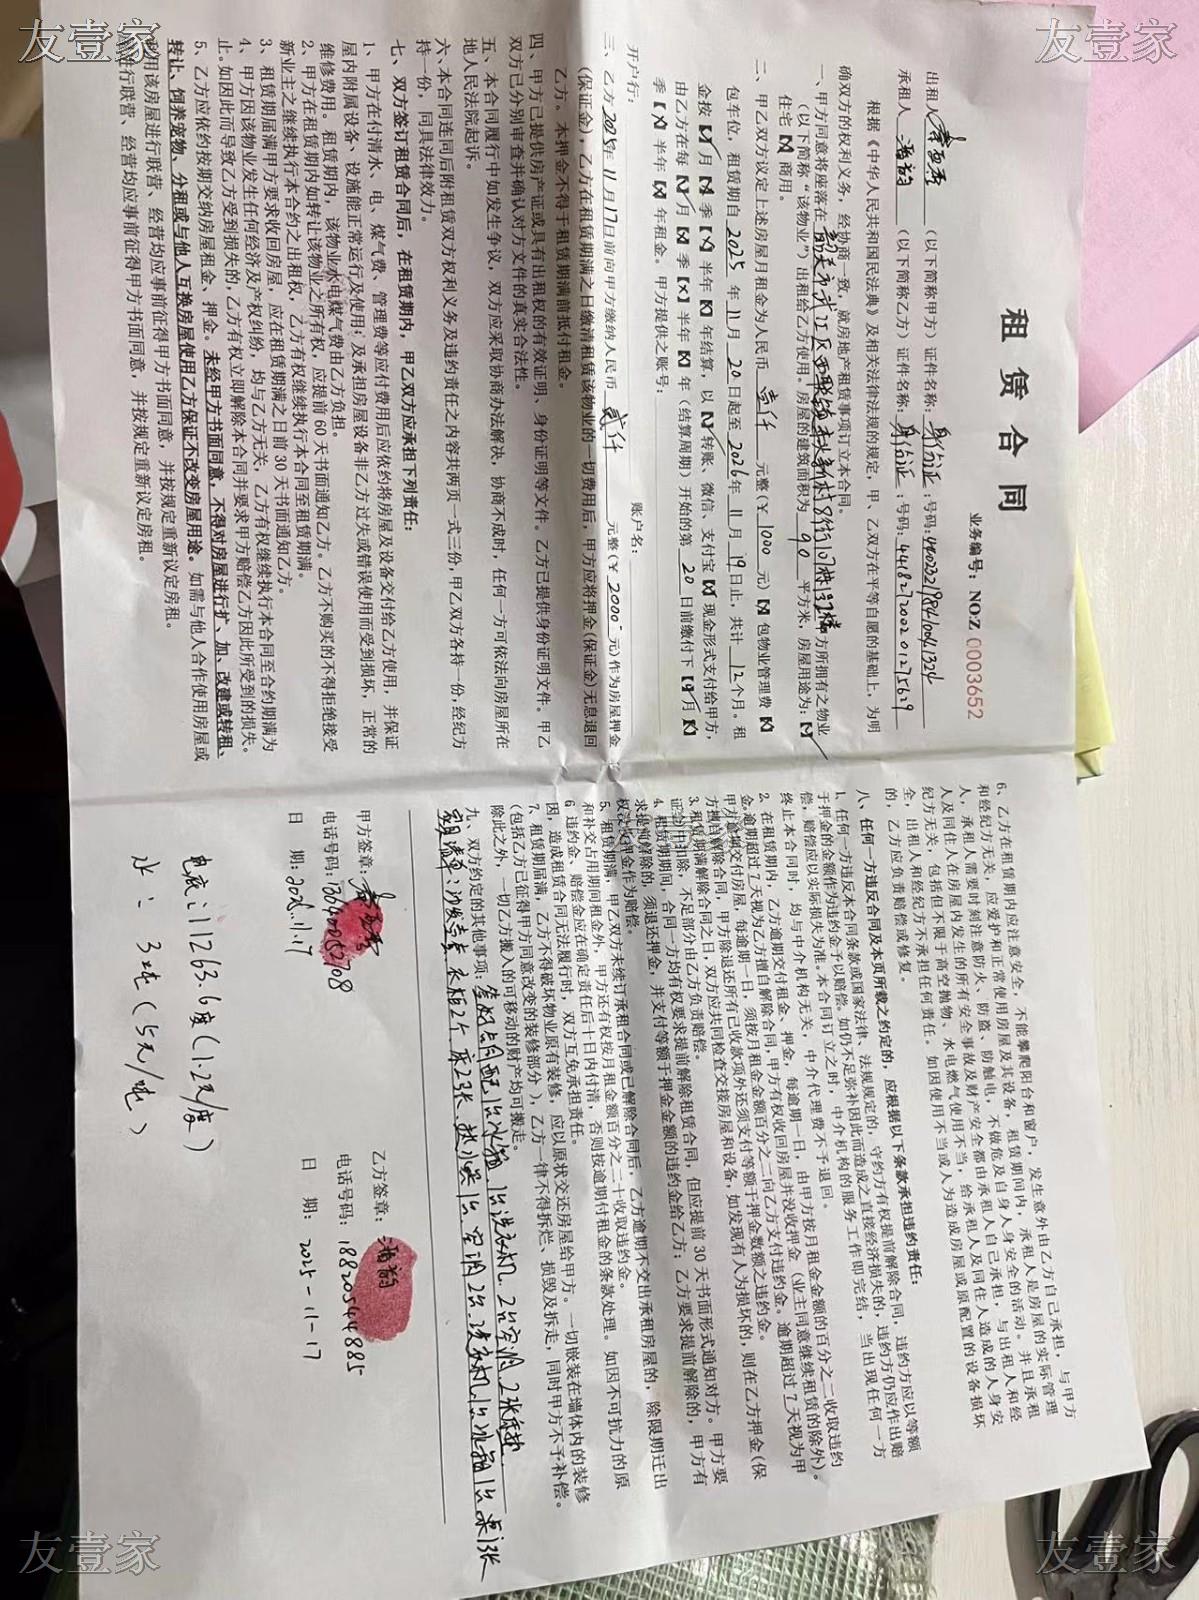 友壹家
友壹家
租赁合同
业务编号：NO:Z 0003652
出租人 （以下简称甲方）证件名称：身份证：号码：440232198410041324
承租人 （以下简称乙方）证件名称：身份证：号码：441827200201275619
根据《中华人民共和国民法典》及相关法律法规的规定，甲、乙双方在平等自愿的基础上，为明
确双方的权利义务，经协商一致，就房地产租赁事项订立本合同。
一、甲方同意将座落在 韶关市武江区西联镇 方所拥有之物业
（以下简称“该物业”）出租给乙方使用。房屋的建筑面积为 90 平方米，房屋用途为：
住宅 商用。
二、甲乙双方议定上述房屋月租金为人民币 壹仟 元整（¥ 1000 元） 包物业管理费
包车位，租赁期自 2025 年 11 月 20 日起至 2026 年 11 月 19 日止，共计 12 个月。租
金按 月 季 半年 年结算，以 转账、微信、支付宝 现金形式支付给甲方，
由乙方在每 月 季 半年 年（结算周期）开始的第 20 日前缴付下 月
季 半年 年租金。甲方提供之账号：
开户行： 账户名：
三、乙方2025年11月17日前向甲方缴纳人民币 贰仟 元整（¥ 2000- 元）作为房屋押金
（保证金），乙方在租赁期满之日缴清租赁该物业的一切费用后，甲方应将押金（保证金）无息退回
乙方。本押金不得于租赁期满前抵付租金。
四、甲方已提供房产证或具有出租权的有效证明、身份证明等文件。乙方已提供身份证明文件。甲乙
双方已分别审查并确认对方文件的真实合法性。
五、本合同履行中如发生争议，双方应采取协商办法解决，协商不成时，任何一方可依法向房屋所在
地人民法院起诉。
六、本合同连同后附租赁双方权利义务及违约责任之内容共两页一式三份，甲乙双方各持一份，经纪方
持一份，同具法律效力。
七、双方签订租赁合同后，在租赁期内，甲乙双方应承担下列责任：
1、甲方在付清水、电、煤气费、管理费等应付费用后应依约将房屋及设备交付给乙方使用，并保证
屋内附属设备、设施能正常运行及使用；及承担房屋设备非乙方过失或错误使用而受到损坏，正常的
维修费用。租赁期内，该物业水电煤气费由乙方负担。
2、甲方在租赁期内如转让该物业之所有权，应提前 60 天书面通知乙方。乙方不购买的不得拒绝接受
新业主之继续执行本合约之出租权，乙方有权继续执行本合同至租赁期满。
3、租赁期届满甲方要求收回房屋，应在租赁期满之日前 30 天书面通知乙方。
4、甲方因该物业发生任何经济及产权纠纷，均与乙方无关，乙方有权继续执行本合同至合约期满为
止。如因此而导致乙方受到损失的，乙方有权立即解除本合同并要求甲方赔偿乙方因此所受到的损失。
5、乙方应依约按期交纳房屋租金、押金。未经甲方书面同意，不得对房屋进行扩、加、改建或转租、
转让、饲养宠物、分租或与他人互换房屋使用乙方保证不改变房屋用途。如需与他人合作使用房屋或
利用该房屋进行联营、经营均应事前征得甲方书面同意，并按规定重新议定房租。
进行联营、经营均应事前征得甲方书面同意，并按规定重新议定房租。
6、乙方在租赁期内应注意安全，不能攀爬阳台和窗户，发生意外由乙方自己承担，与甲方
和经纪方无关，应爱护和正常使用房屋及其设备，租赁期间内，承租人是房屋的实际管理
人，承租人需要时刻注意防火、防盗、防触电，不做危及自身人身安全的活动。并且承租
人及同住人在房屋内发生的所有安全事故及财产安全都由承租人自己承担，与出租人和经
纪方无关，包括但不限于高空抛物、水电燃气使用不当，给承租人及同住人造成的人身安
全，出租人和经纪方不承担任何责任。如因使用不当或人为造成房屋或原配置的设备损坏
的，乙方应负责赔偿或修复。
八、任何一方违反合同及本页所载之约定的，应根据以下条款承担违约责任：
1、任何一方违反本合同条款或国家法律、法规规定的，守约方有权提前解除合同，违约方应以等额
于押金的金额作为违约金予以赔偿，如仍不足弥补因此而造成之直接经济损失的，违约方仍应作出赔
偿，赔偿应以实际损失为准。本合同订立之时，中介机构的服务工作即完结，当出现任何一方
终止本合同时，均与中介机构无关，中介代理费不予退回。
2、在租赁期内，乙方逾期交付租金、押金，每逾期一日，由甲方按月租金金额的百分之二收取违约
金。逾期超过 7 天视为乙方擅自解除合同，甲方有权收回房屋并没收押金（业主同意继续租赁的除外）。
甲方逾期交付房屋，每逾期一日，须按月租金金额百分之二向乙方支付违约金。逾期超过 7 天视为甲
方擅自解除合同，甲方除退还所有已收款项外还须支付等额于押金数额之违约金。
3、租赁期满解除合同之日，双方应共同检查交接房屋和设备，如发现有人为损坏的，则在乙方押金（保
证金）中扣除，不足部分由乙方负责赔偿。
4、租赁期期间，合同一方均有权要求提前解除租赁合同，但应提前 30 天书面形式通知对方。甲方要
求提前解除的，须退还押金，并支付等额于押金金额的违约金给乙方；乙方要求提前解除的，甲方有
权没收押金作为赔偿。
5、租赁期满，甲乙双方未续订承租合同或已解除合同后，乙方逾期不交出承租房屋的，除限期迁出
和补交占用期间租金外，甲方还有权按月租金额百分之二十收取违约金。
6 违约金、赔偿金应在确定责任后十日内付清，否则按逾期付租金的条款处理。如因不可抗力的原
因，造成租赁合同无法履行时，双方互免承担责任。
7、租赁期届满，乙方不得破坏物业原有装修，应以原状交还房屋给甲方。一切嵌装在墙体内的装修
（包括乙方已征得甲方同意改变的装修部分），乙方一律不得拆烂、损毁及拆走，同时甲方不予补偿。
除此之外，一切乙方搬入的可移动的财产均可搬走。
九、双方约定的其他事项： 1台冰箱 1台洗衣机 2台空调 2张床垫
家具清单：沙发 衣柜2个 床2张 热水器1台 空调2台 洗衣机1台 冰箱1台 桌1张
甲方签章： 乙方签章：
电话号码：13640052708 电话号码：18820544885
日 期：2025.11.17 日 期：2025-11-17
电底：11263.6度（1.2元/度）
水：3吨（5元/吨）
友壹家
友壹家